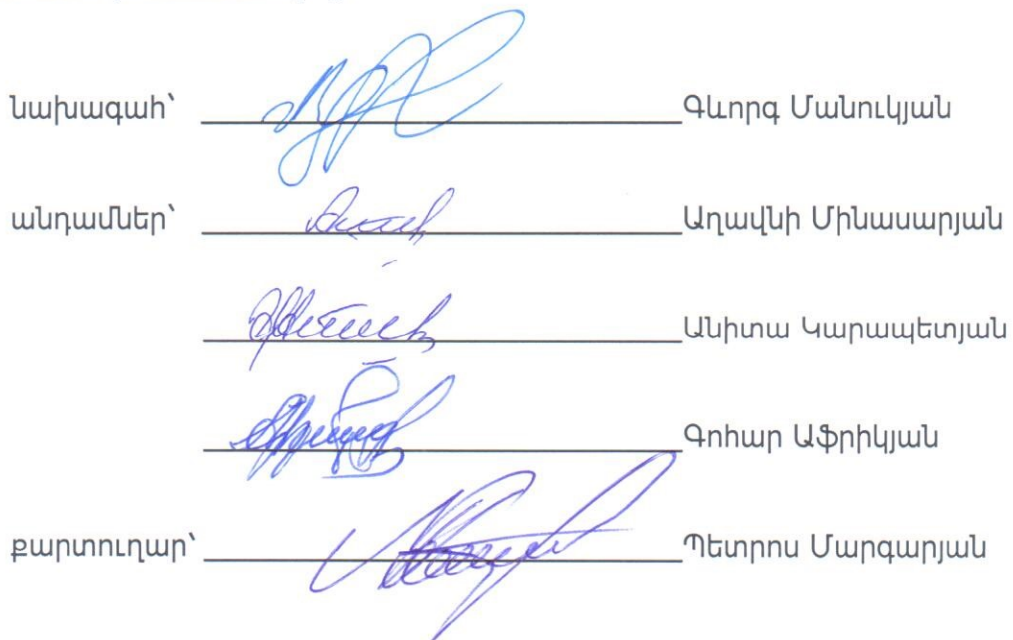 նախագահ՝ Գևորգ Մանուկյան
անդամներ՝ Աղավնի Մինասարյան
Անիտա Կարապետյան
Գոհար Աֆրիկյան
քարտուղար՝ Պետրոս Մարգարյան